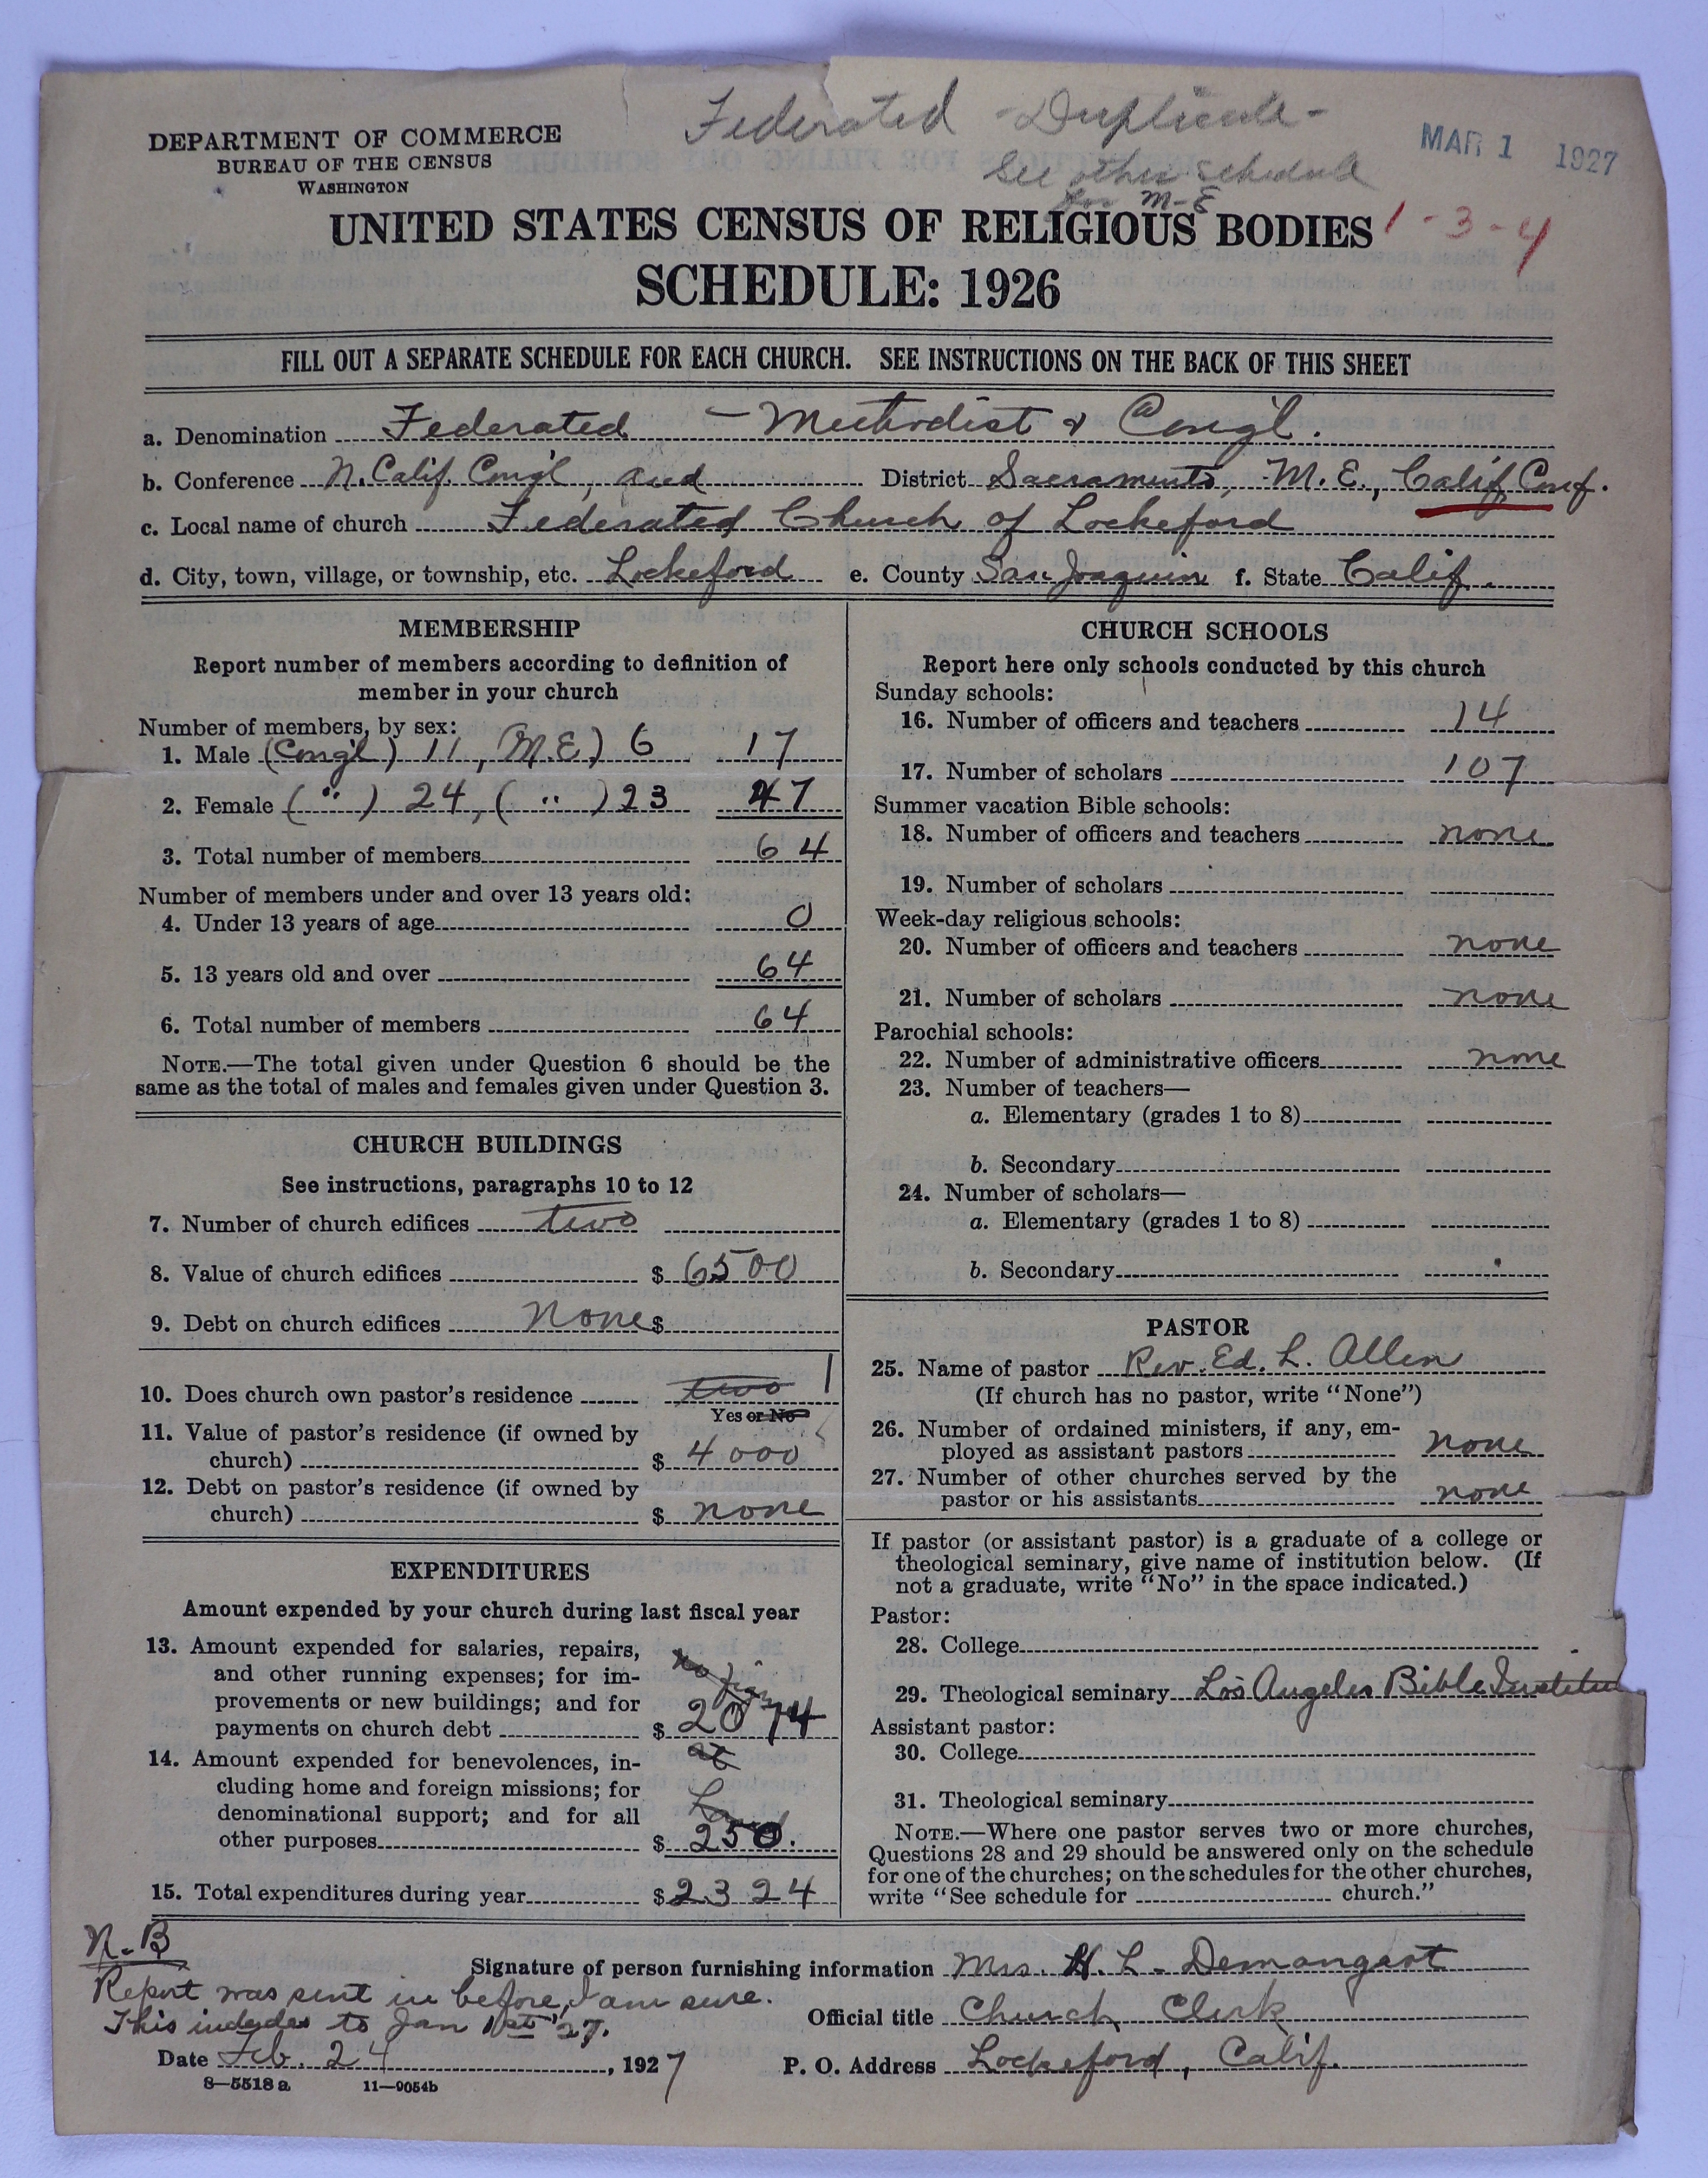 Federated - Duplicate -
See other schedule
for M-E
MAR 1 1927
DEPARTMENT OF COMMERCE
BUREAU OF THE CENSUS
WASHINGTON
UNITED STATES CENSUS OF RELIGIOUS BODIES 1-3-4
SCHEDULE: 1926
FILL OUT A SEPARATE SCHEDULE FOR EACH CHURCH. SEE INSTRUCTIONS ON THE BACK OF THIS SHEET
a. Denomination Federated - Methodist & Congl.
b. Conference N. Calif. Congl, and District Sacramento, M.E., Calif Conf.
c. Local name of church Federated Church of Lockeford
d. City, town, village, or township, etc. Lockeford e. County San Joaquin f. State Calif.
MEMBERSHIP
Report number of members according to definition of
member in your church
Number of members, by sex:
1. Male (Congl) 11, (M.E) 6 17
2. Female ( " ) 24, ( " ) 23 47
3. Total number of members 64
Number of members under and over 13 years old:
4. Under 13 years of age 0
5. 13 years old and over 64
6. Total number of members 64
NOTE.—The total given under Question 6 should be the
same as the total of males and females given under Question 3.
CHURCH BUILDINGS
See instructions, paragraphs 10 to 12
7. Number of church edifices two
8. Value of church edifices $ 6500
9. Debt on church edifices None $
10. Does church own pastor's residence two 1
Yes or No
11. Value of pastor's residence (if owned by
church) $ 4000
12. Debt on pastor's residence (if owned by
church) $ none
EXPENDITURES
Amount expended by your church during last fiscal year
13. Amount expended for salaries, repairs,
and other running expenses; for im-
provements or new buildings; and for
payments on church debt $ 2074
no figs
14. Amount expended for benevolences, in-
cluding home and foreign missions; for
denominational support; and for all
other purposes $ 250.
at
15. Total expenditures during year $ 2324
CHURCH SCHOOLS
Report here only schools conducted by this church
Sunday schools:
16. Number of officers and teachers 14
17. Number of scholars 107
Summer vacation Bible schools:
18. Number of officers and teachers none
19. Number of scholars
Week-day religious schools:
20. Number of officers and teachers none
21. Number of scholars none
Parochial schools:
22. Number of administrative officers none
23. Number of teachers—
a. Elementary (grades 1 to 8)
b. Secondary
24. Number of scholars—
a. Elementary (grades 1 to 8)
b. Secondary
PASTOR
25. Name of pastor Rev. Ed. L. Allen
(If church has no pastor, write "None")
26. Number of ordained ministers, if any, em-
ployed as assistant pastors none
27. Number of other churches served by the
pastor or his assistants none
If pastor (or assistant pastor) is a graduate of a college or
theological seminary, give name of institution below. (If
not a graduate, write "No" in the space indicated.)
Pastor:
28. College
29. Theological seminary Los Angeles Bible Institute
Assistant pastor:
30. College
31. Theological seminary
NOTE.—Where one pastor serves two or more churches,
Questions 28 and 29 should be answered only on the schedule
for one of the churches; on the schedules for the other churches,
write "See schedule for church."
N.B
Report was sent in before, I am sure.
This includes to Jan 1st '27.
Signature of person furnishing information Mrs. H. L. Demangeot
Official title Church Clerk
Date Feb. 24, 1927 P. O. Address Lockeford, Calif.
8—5518 a 11—9054b